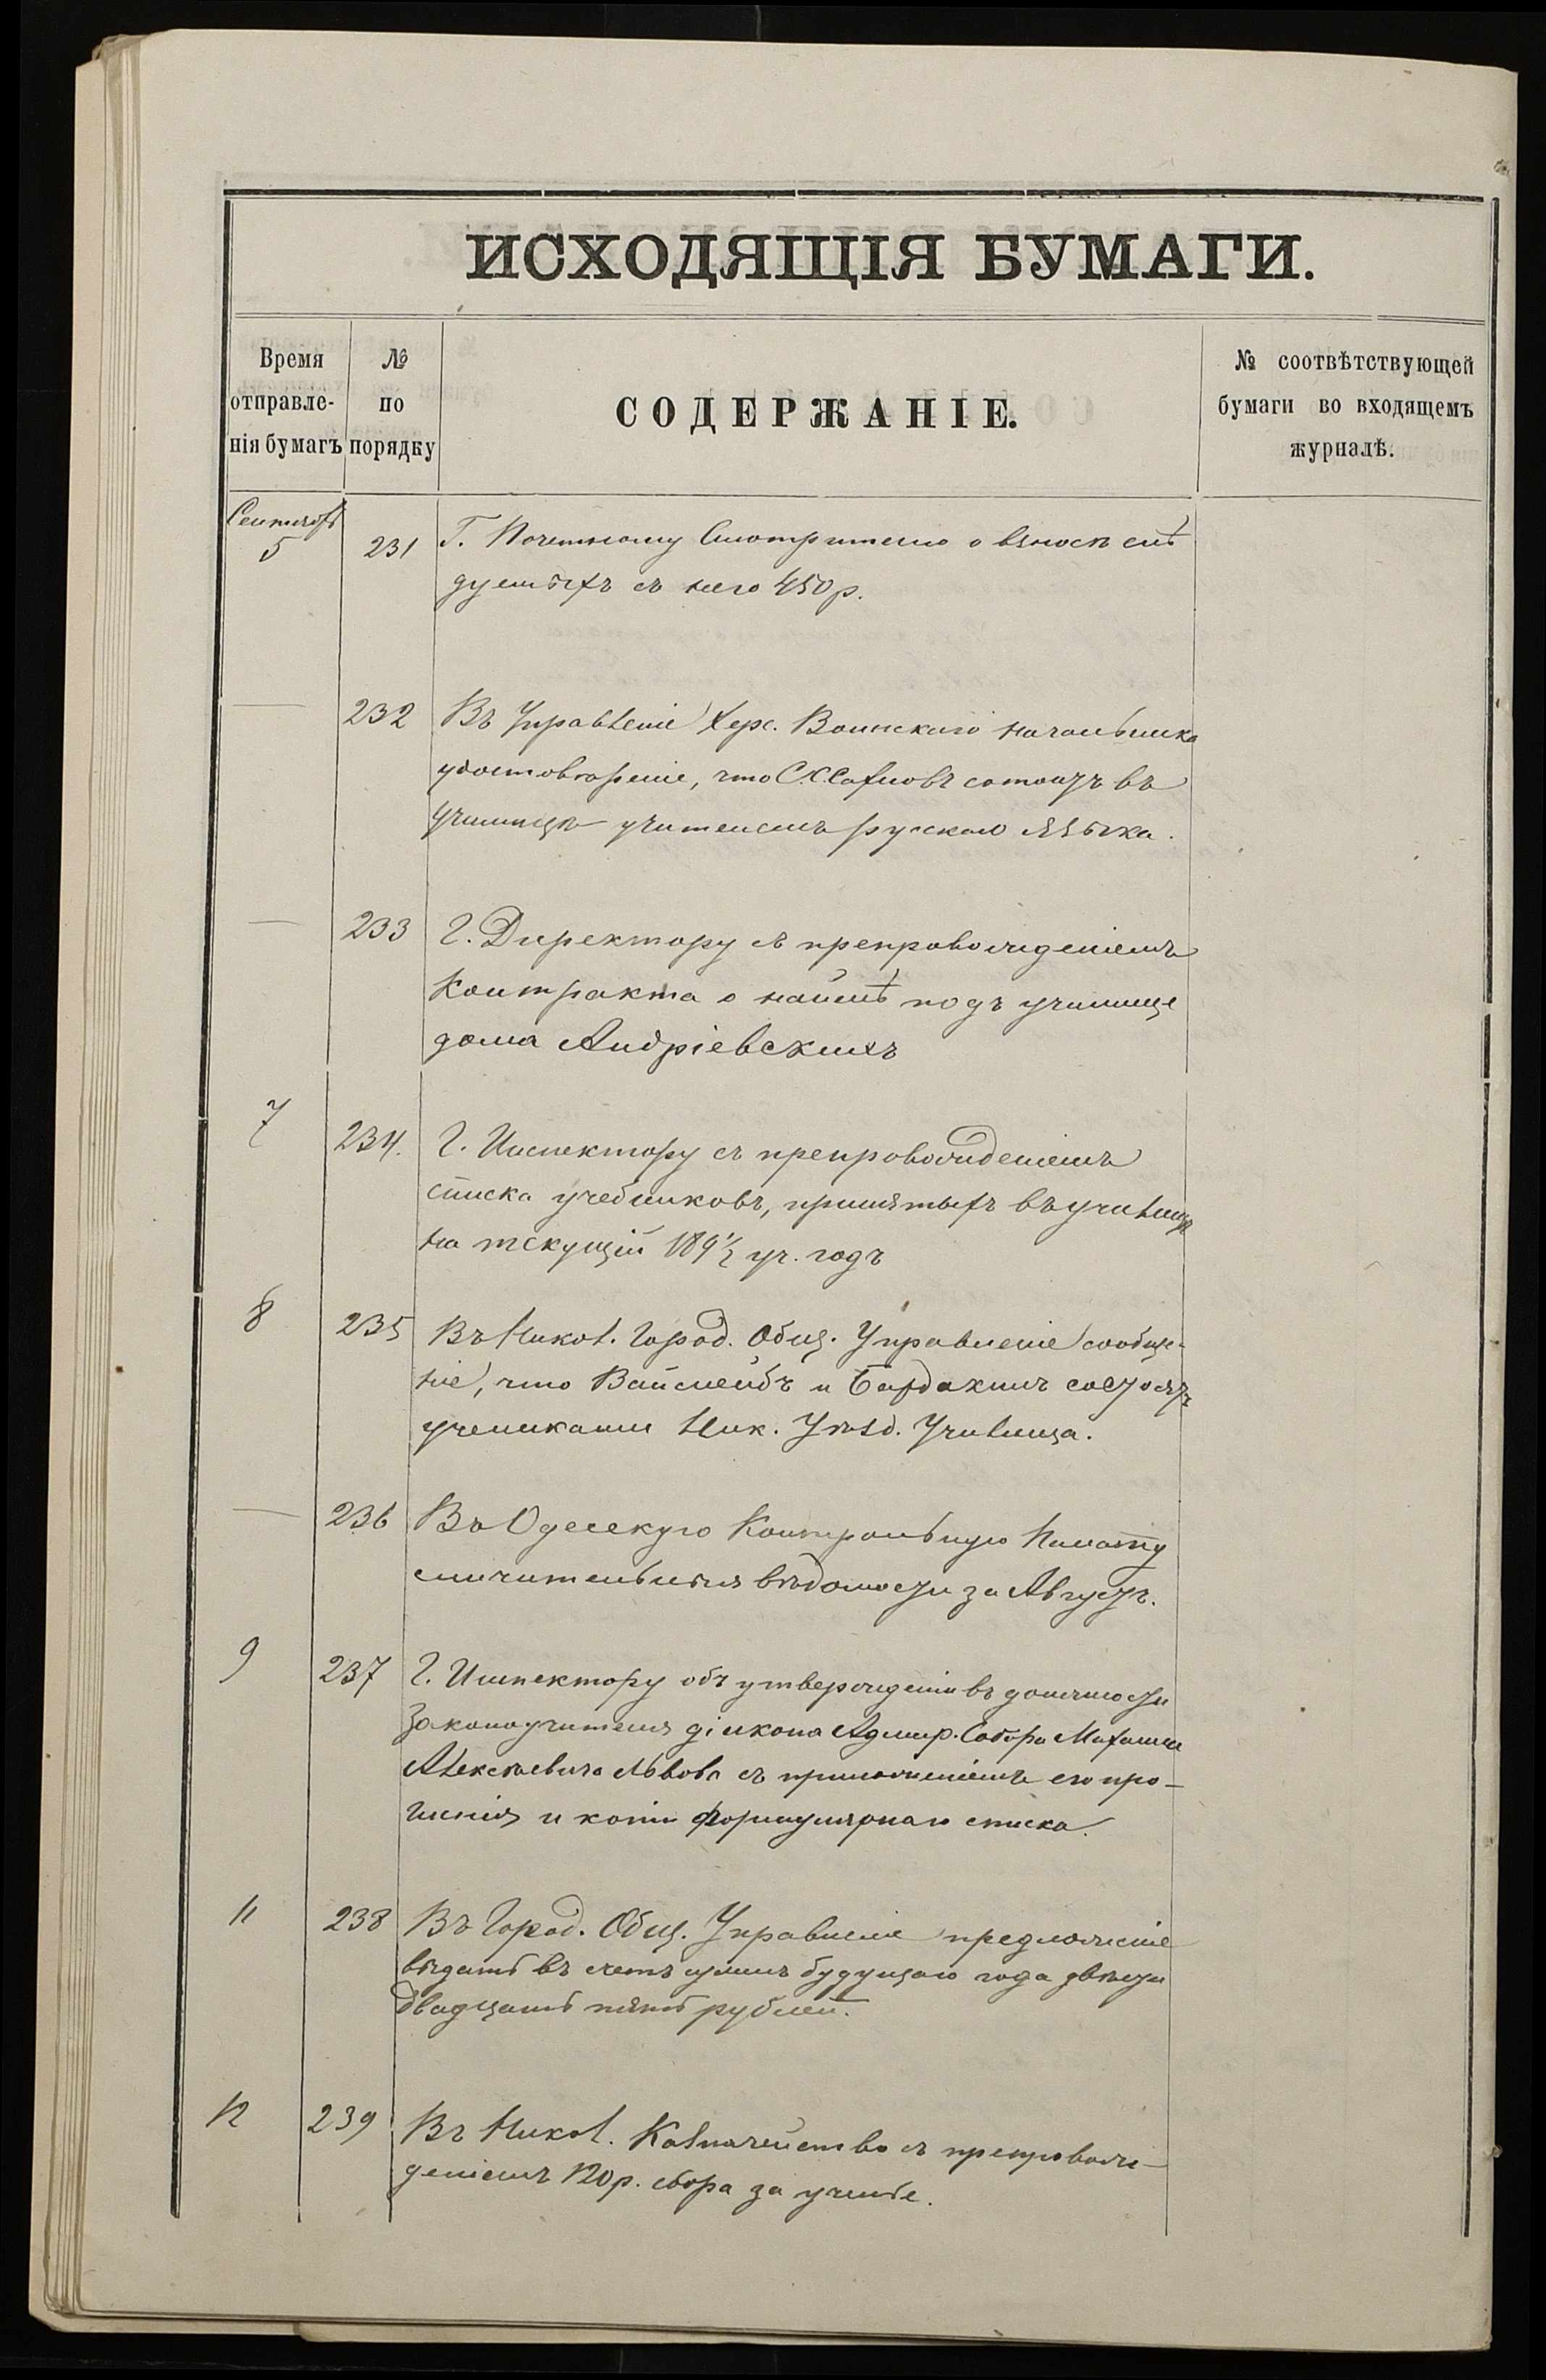 ИСХОДЯЩІЯ БУМАГИ.
Время отправле- нія бумагъ
№ по порядку
СОДЕРЖАНІЕ.
№ соотвѣтствующей бумаги во входящемъ журналѣ.
Сентябрь
5 231 Г. Почетному Смотрителю о взносѣ слѣ
дуемыхъ съ него 450 р.
— 232 Въ Управленіе Херс. Воинскаго начальника
удостовѣреніе, что состоитъ въ
училищѣ учителемъ русскаго языка.
— 233 Г. Директору съ препровожденіемъ
контракта о наймѣ подъ училище
дома Андріевскихъ
7 234. Г. Инспектору съ препровожденіемъ
списка учебниковъ, принятыхъ въ училищѣ
на текущій 189½ уч. годъ
8 235 Въ Никол. Город. Общ. Управленіе сообще-
ніе, что Вайслейбъ и Бардакинъ состоятъ
учениками Ник. Уѣзд. Училища.
— 236 Въ Одесскую Контрольную Палату
сличительныя вѣдомости за Августъ.
9 237 Г. Инспектору объ утвержденіи въ должности
Законоучителя діакона Адмир. Собора Михаила
Алексѣевича Львова съ приложеніемъ его про-
шенія и копіи формулярнаго списка.
11 238 Въ Город. Общ. Управленіе предложеніе
выдать въ счетъ суммъ будущаго года двѣсти
двадцать пять рублей.
12 239 Въ Никол. Казначейство съ препровож-
деніемъ 120 р. сбора за ученіе.